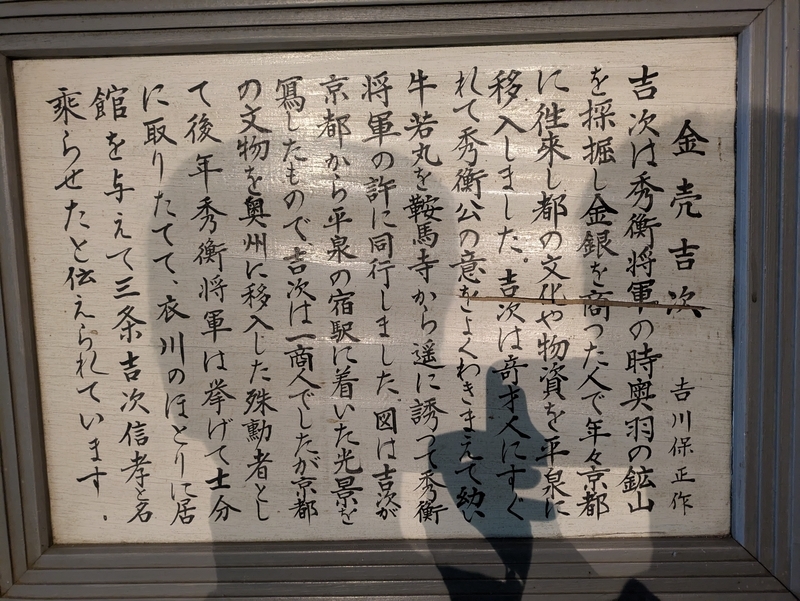 金売吉次 吉川保正作
吉次は秀衡将軍の時奥羽の鉱山
を採掘し金銀を商つた人で年々京都
に徃来し都の文化や物資を平泉に
移入しました。吉次は竒才人にすぐ
れて秀衡公の意をよくわきまえて幼い
牛若丸を鞍馬寺から遥に誘つて秀衡
将軍の許に同行しました、図は吉次が
京都から平泉の宿駅に着いた光景を
冩したもので、吉次は一商人でしたが京都
の文物を奥州に移入した殊勲者とし
て後年秀衡将軍は挙げて士分
に取りたてて、衣川のほとりに居
館を与えて三条吉次信孝と名
乘らせたと伝えられています.